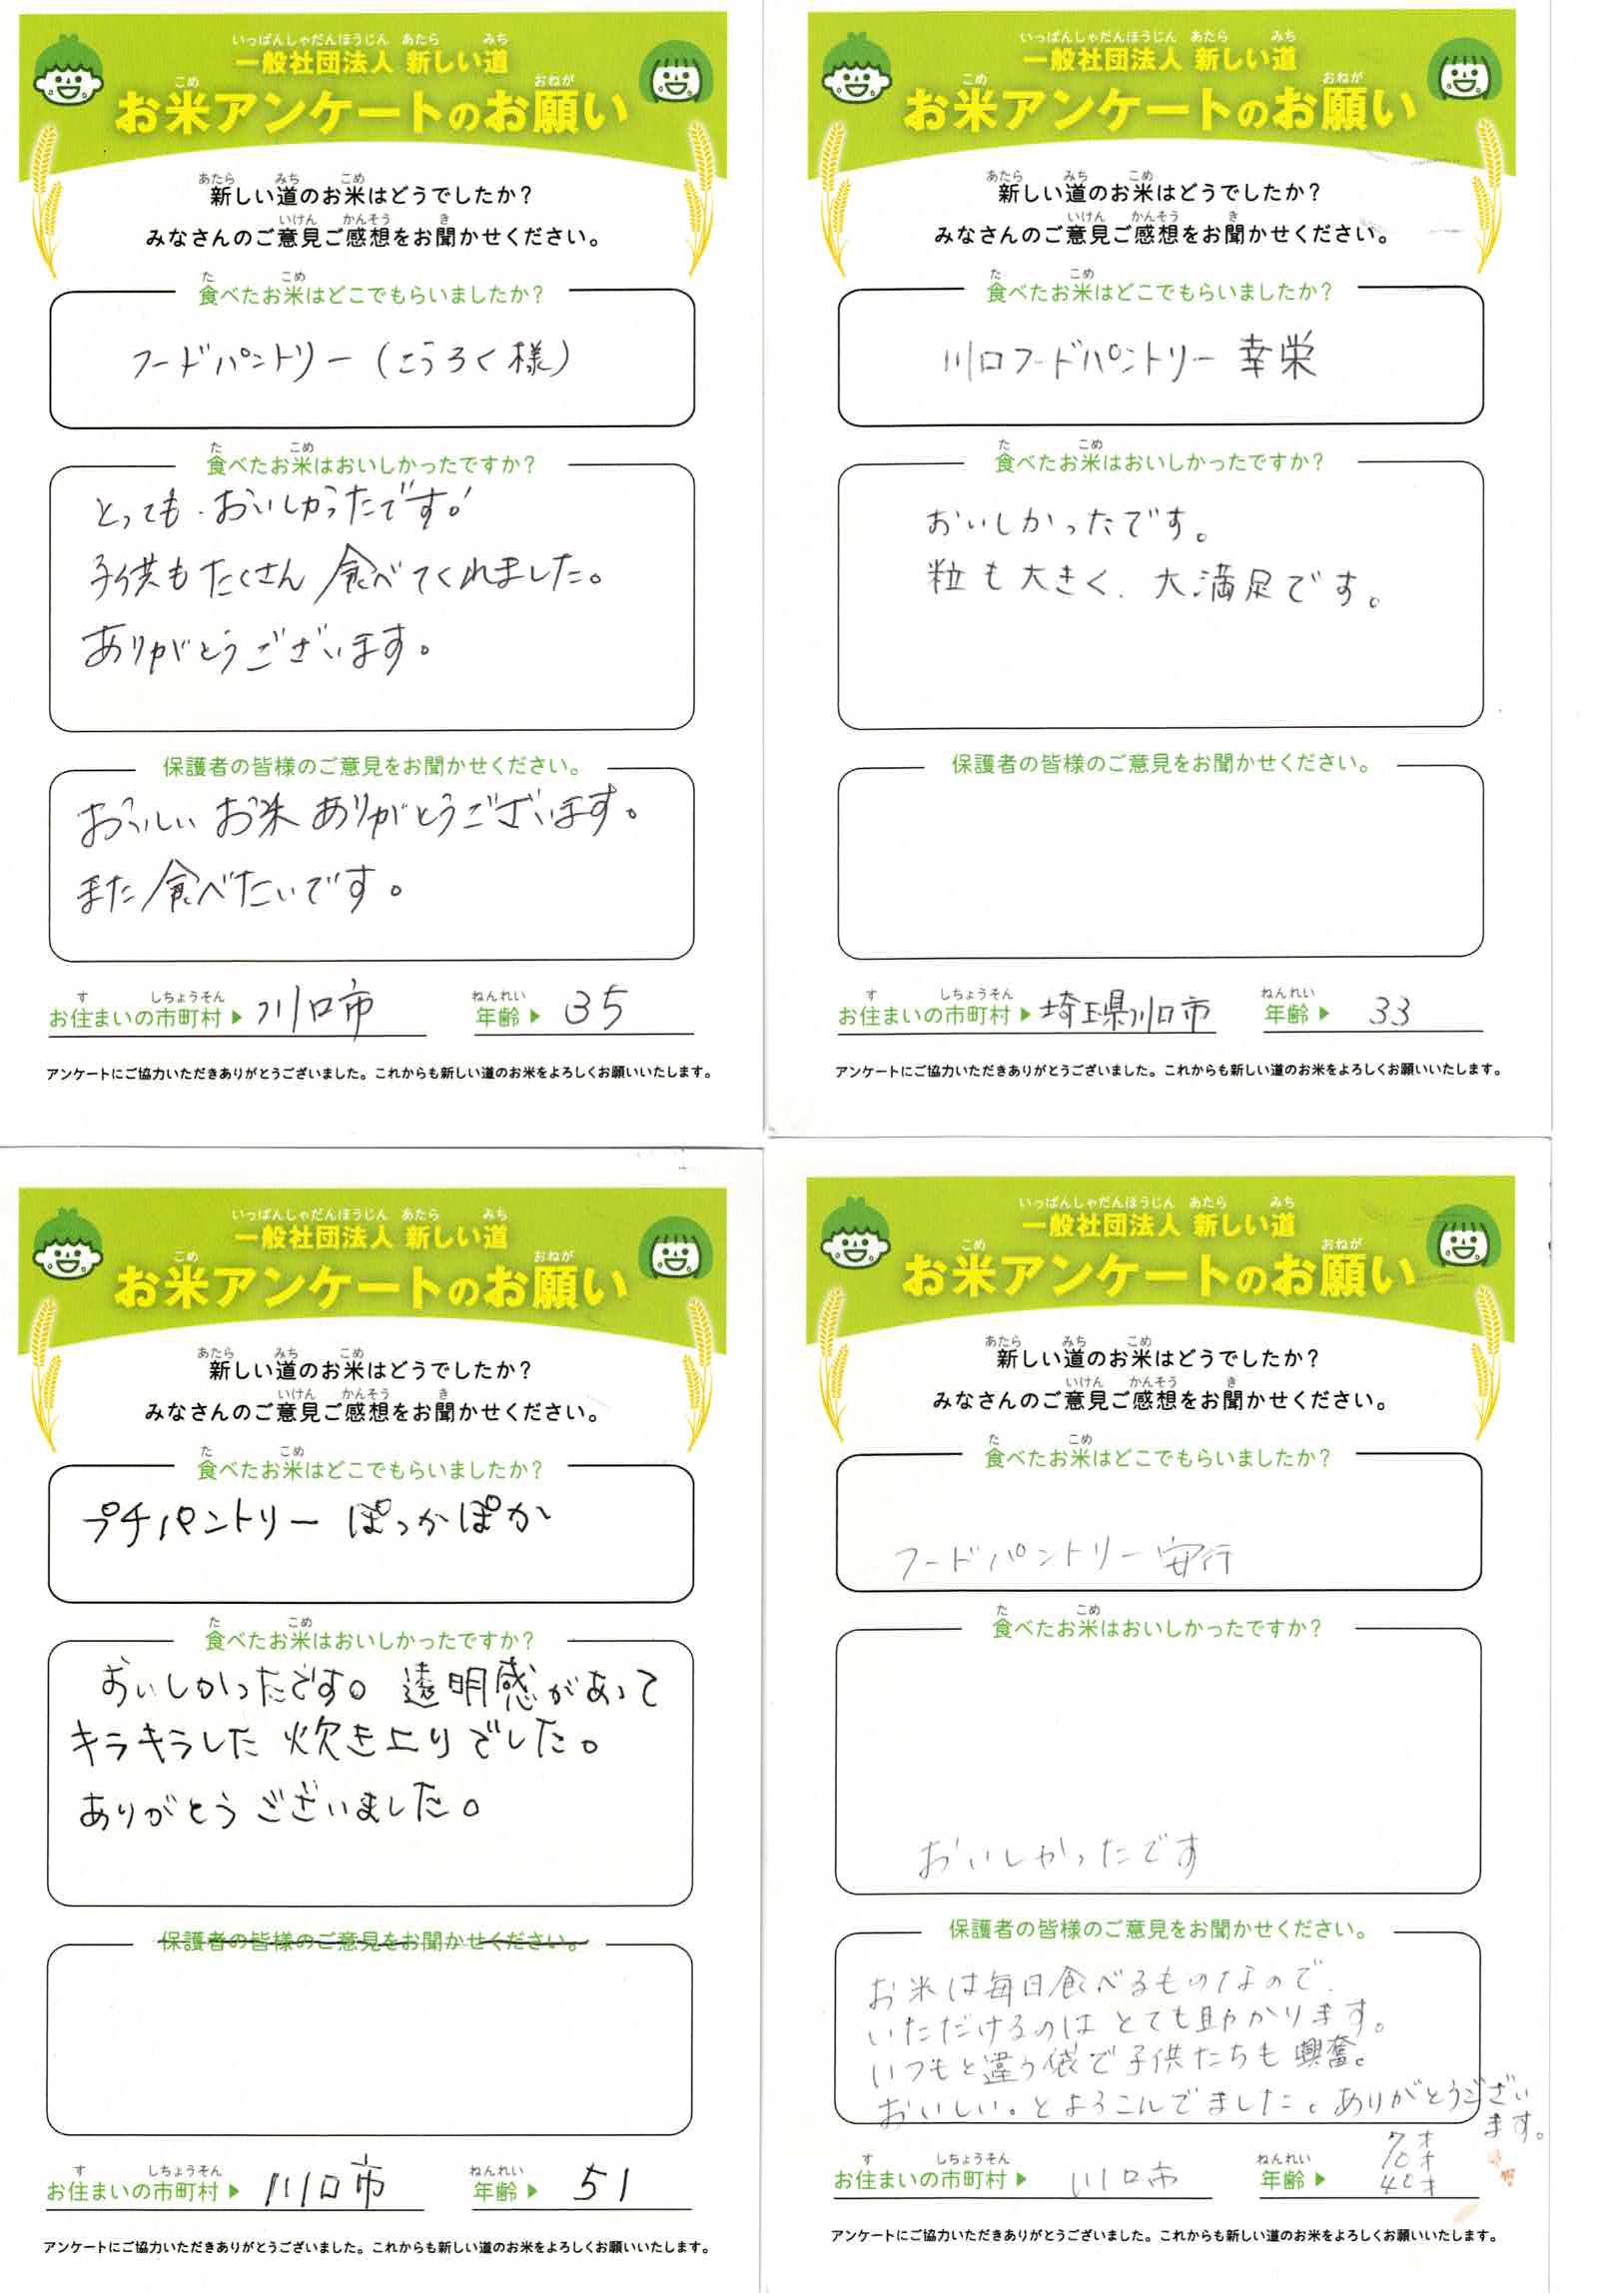 いっぱんしゃだんほうじん あたら みち
一般社団法人 新しい道
こめ おねが
お米アンケートのお願い
あたら みち こめ
新しい道のお米はどうでしたか？
いけん かんそう き
みなさんのご意見ご感想をお聞かせください。
た こめ
食べたお米はどこでもらいましたか？
フードパントリー(こうろく様)
た こめ
食べたお米はおいしかったですか？
とっても、おいしかったです!
子供もたくさん食べてくれました。
ありがとうございます。
保護者の皆様のご意見をお聞かせください。
おいしいお米ありがとうございます。
また食べたいです。
す しちょうそん ねんれい
お住まいの市町村▶ 川口市 年齢▶ 35
アンケートにご協力いただきありがとうございました。これからも新しい道のお米をよろしくお願いいたします。
いっぱんしゃだんほうじん あたら みち
一般社団法人 新しい道
こめ おねが
お米アンケートのお願い
あたら みち こめ
新しい道のお米はどうでしたか？
いけん かんそう き
みなさんのご意見ご感想をお聞かせください。
た こめ
食べたお米はどこでもらいましたか？
川口フードパントリー 幸栄
た こめ
食べたお米はおいしかったですか？
おいしかったです。
粒も大きく、大満足です。
保護者の皆様のご意見をお聞かせください。
す しちょうそん ねんれい
お住まいの市町村▶ 埼玉県川口市 年齢▶ 33
アンケートにご協力いただきありがとうございました。これからも新しい道のお米をよろしくお願いいたします。
いっぱんしゃだんほうじん あたら みち
一般社団法人 新しい道
こめ おねが
お米アンケートのお願い
あたら みち こめ
新しい道のお米はどうでしたか？
いけん かんそう き
みなさんのご意見ご感想をお聞かせください。
た こめ
食べたお米はどこでもらいましたか？
プチパントリー ぽっかぽか
た こめ
食べたお米はおいしかったですか？
おいしかったです。透明感があって
キラキラした 炊き上りでした。
ありがとうございました。
保護者の皆様のご意見をお聞かせください。
す しちょうそん ねんれい
お住まいの市町村▶ 川口市 年齢▶ 51
アンケートにご協力いただきありがとうございました。これからも新しい道のお米をよろしくお願いいたします。
いっぱんしゃだんほうじん あたら みち
一般社団法人 新しい道
こめ おねが
お米アンケートのお願い
あたら みち こめ
新しい道のお米はどうでしたか？
いけん かんそう き
みなさんのご意見ご感想をお聞かせください。
た こめ
食べたお米はどこでもらいましたか？
フードパントリー安行
た こめ
食べたお米はおいしかったですか？
おいしかったです
保護者の皆様のご意見をお聞かせください。
お米は毎日食べるものなので、
いただけるのはとても助かります。
いつもと違う袋で子供たちも興奮。
おいしい。とよろこんでました。ありがとうござい
ます。
7才
す しちょうそん ねんれい 10才
お住まいの市町村▶ 川口市 年齢▶ 40才
アンケートにご協力いただきありがとうございました。これからも新しい道のお米をよろしくお願いいたします。